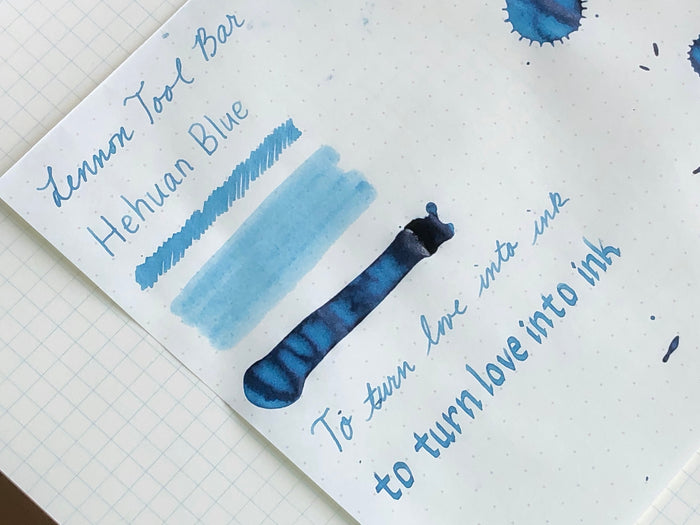 Lennon Tool Bar
Hehuan Blue
To turn love into ink
to turn love into ink